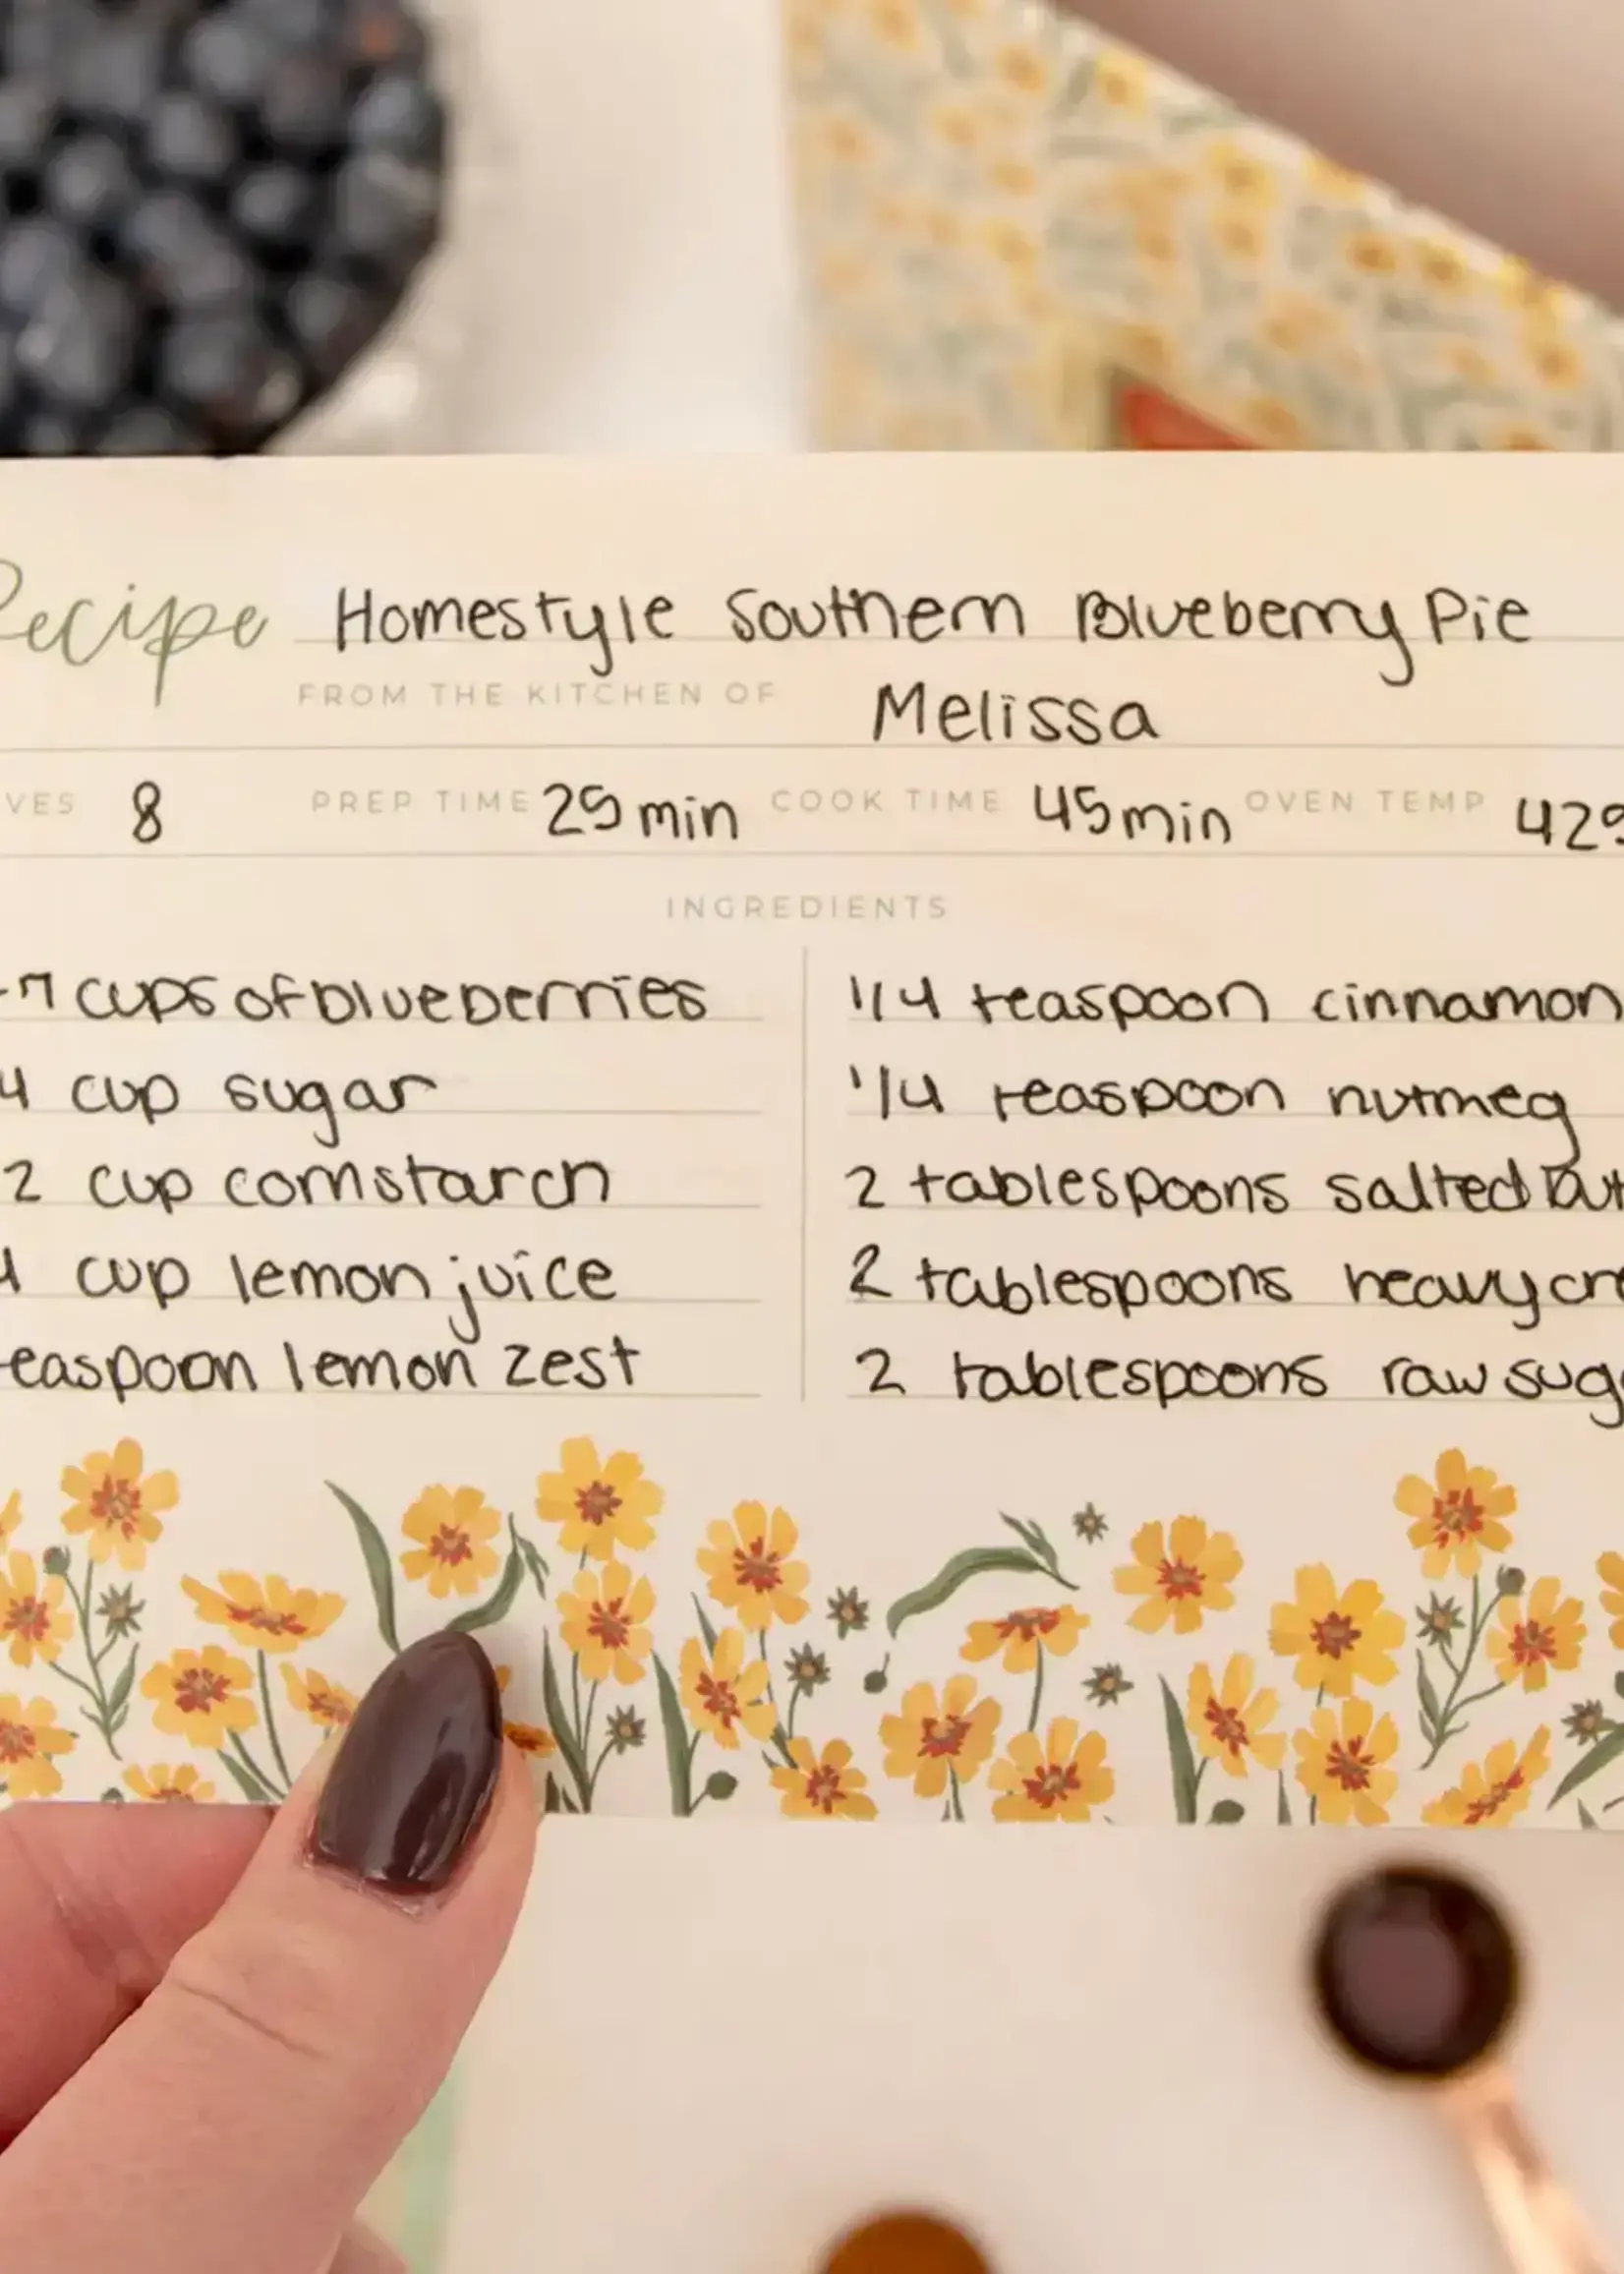 Recipe Homestyle Southern Blueberry Pie
FROM THE KITCHEN OF Melissa
VES 8 PREP TIME 25 min COOK TIME 45 min OVEN TEMP 425
INGREDIENTS
-7 cups of blueberries
4 cup sugar
2 cup cornstarch
4 cup lemon juice
teaspoon lemon zest
1/4 teaspoon cinnamon
1/4 teaspoon nutmeg
2 tablespoons salted but
2 tablespoons heavy cre
2 tablespoons raw suga